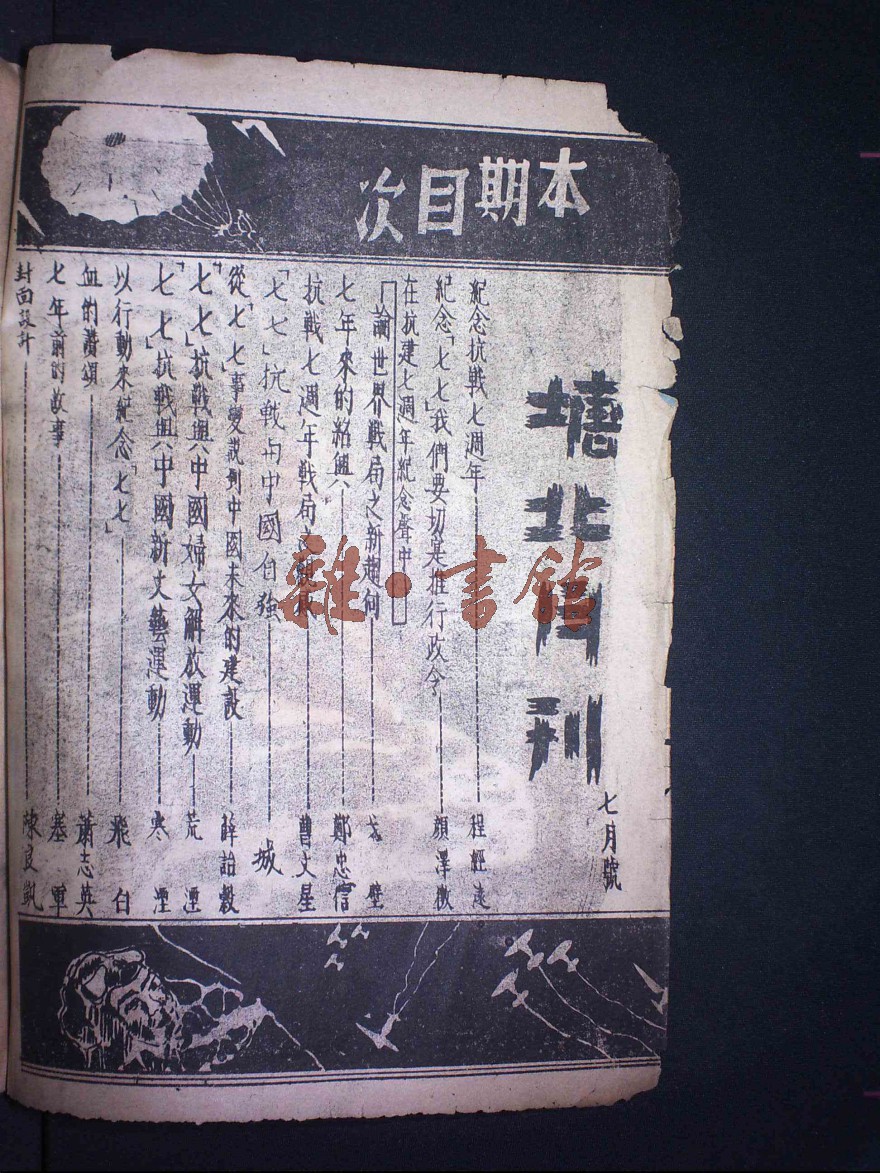 本期目次
塘北週刊
七月號
紀念抗戰七週年 程經遠
紀念「七七」我們要切實推行政令 顏澤徵
在抗建七週年紀念聲中
「論世界戰局之新趨向 戈壁
七年來的紹興 鄭忠信
抗戰七週年戰局之 曹文星
「七七」抗戰與中國自強 城
從「七七」事變說到中國未來的建設 薛詒穀
「七七」抗戰與中國婦女解放運動 荒湮
「七七」抗戰與中國新文藝運動 寒湮
以行動來紀念「七七」 飛白
血的讚頌 蕭志英
七年前的故事 塞軍
封面設計 陳良凱
雜·書館